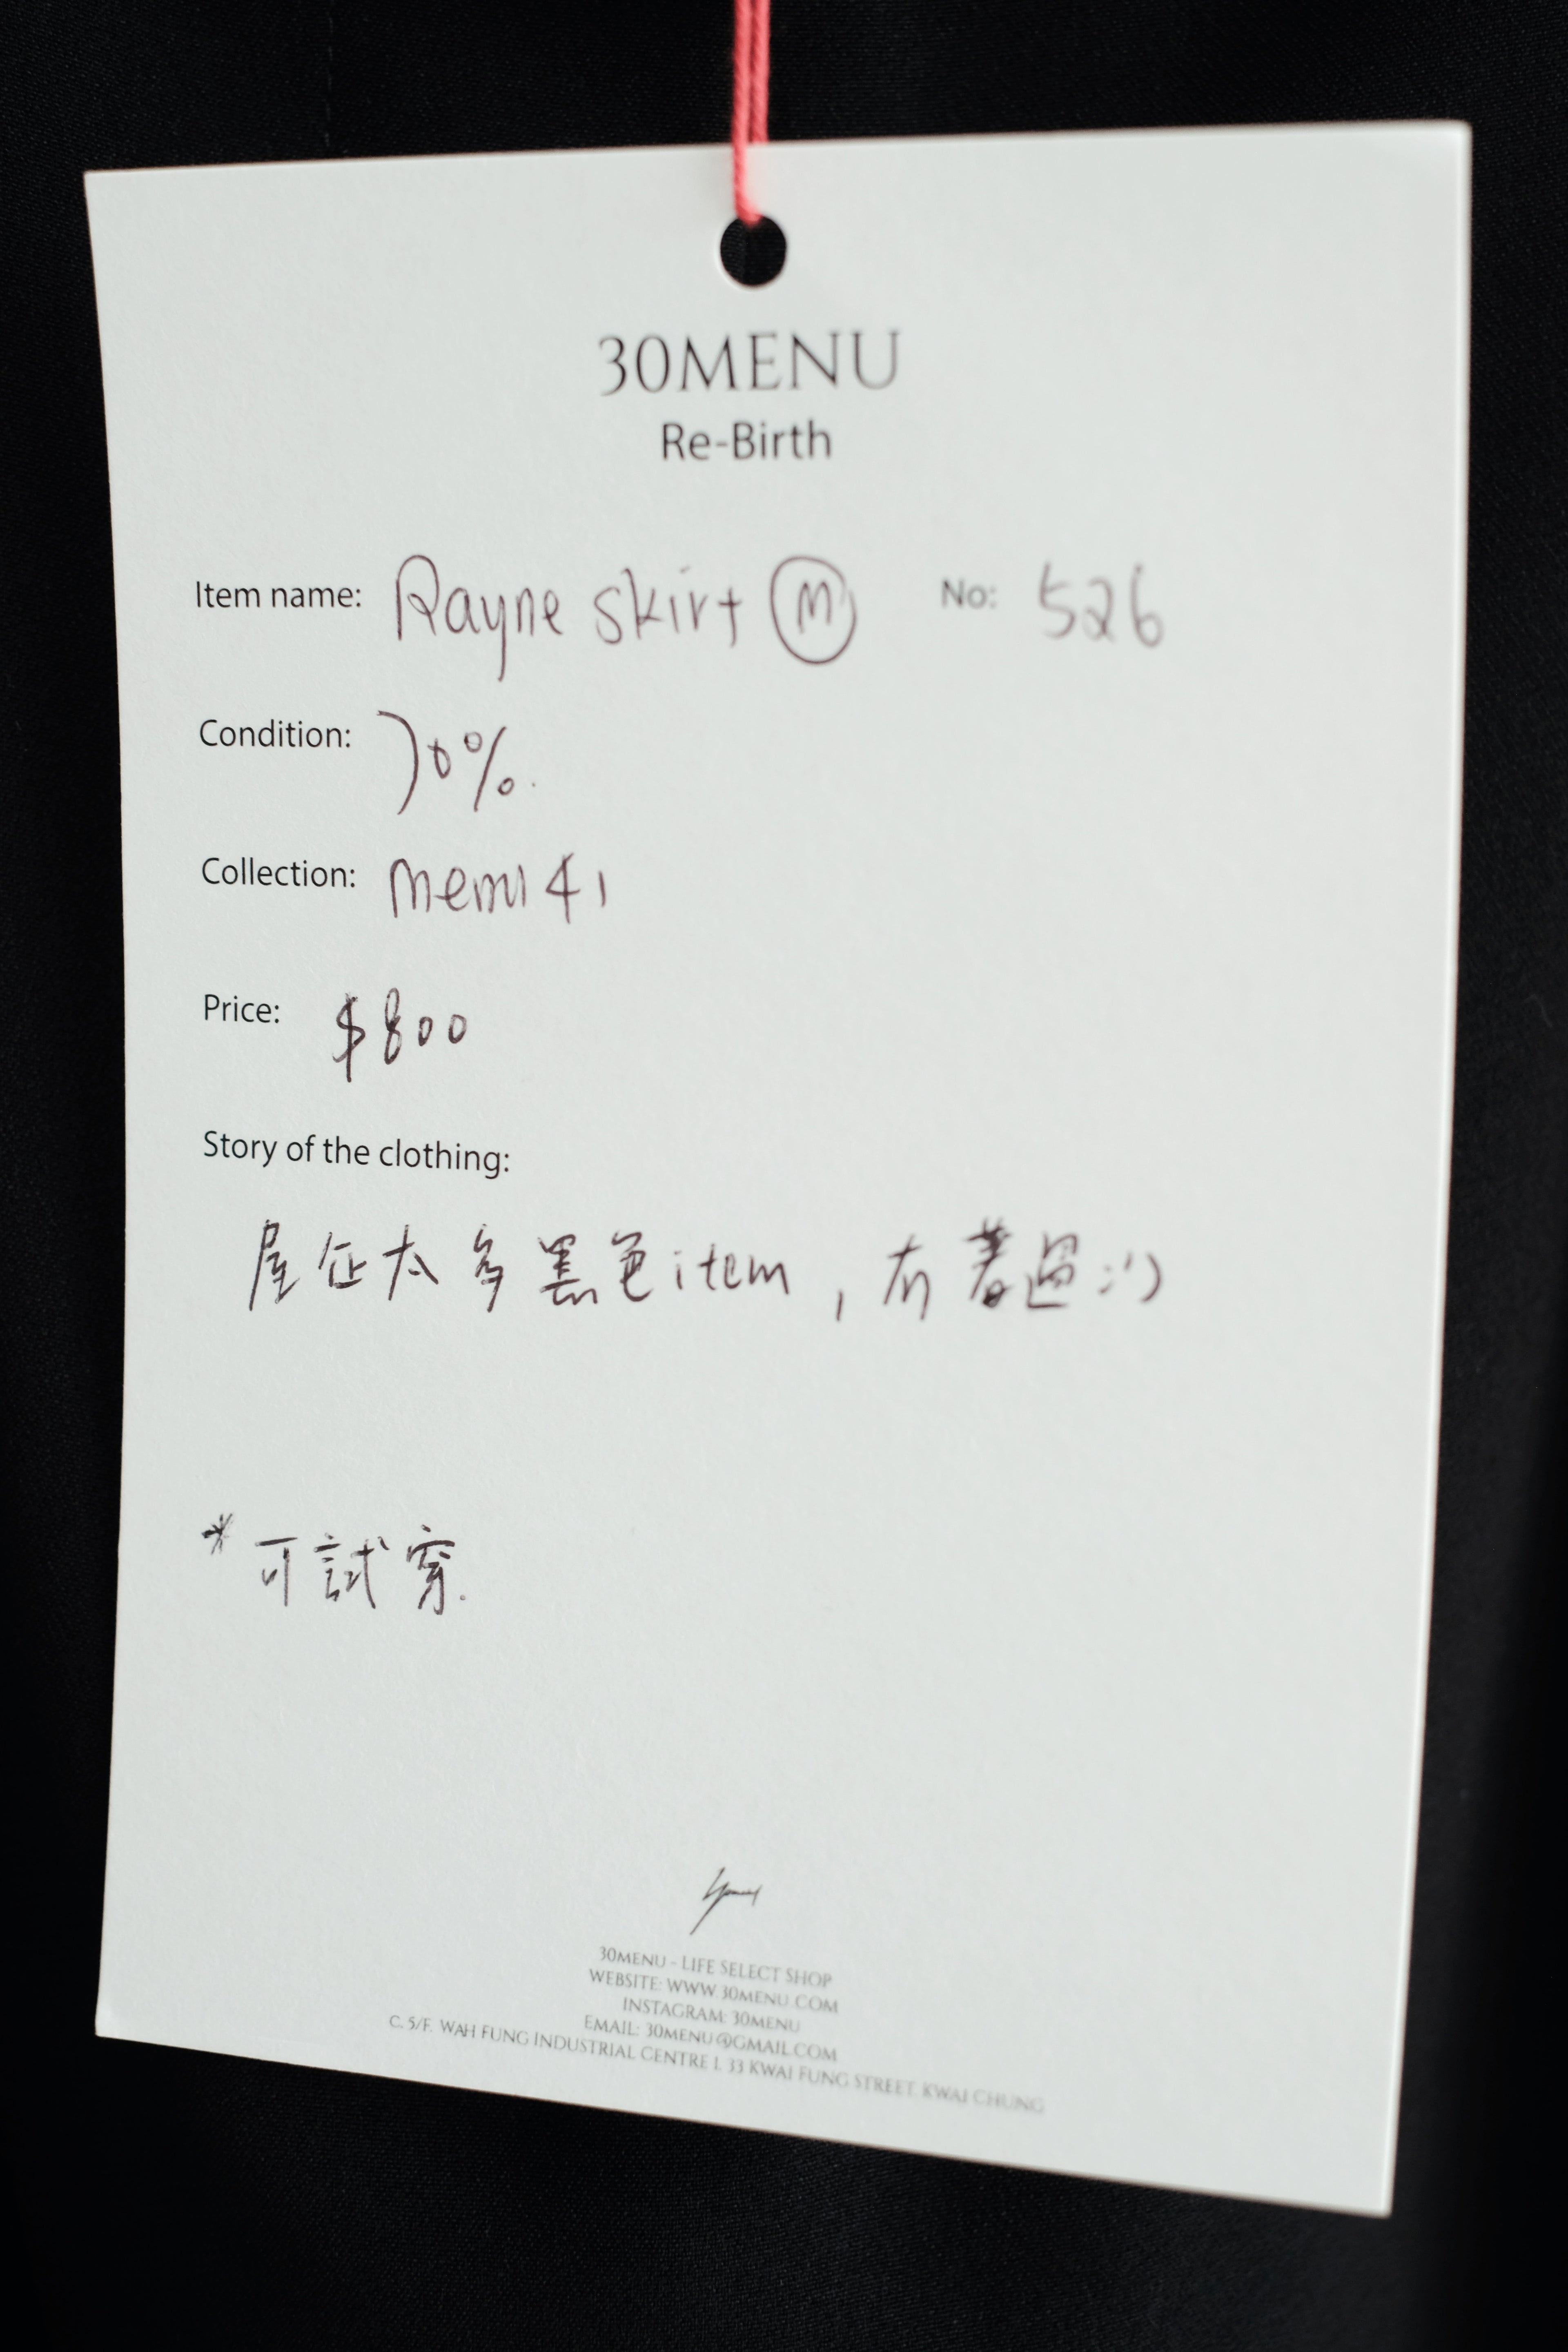 30MENU
Re-Birth
Item name: Rayne skirt Ⓜ No: 526
Condition: 70%.
Collection: menu 41
Price: $800
Story of the clothing:
屋企太多黑色item, 冇着過:')
*可試穿.
30MENU - LIFE SELECT SHOP
WEBSITE: WWW.30MENU.COM
INSTAGRAM: 30MENU
EMAIL: 30MENU@GMAIL.COM
C. 5/F. WAH FUNG INDUSTRIAL CENTRE I. 33 KWAI FUNG STREET. KWAI CHUNG